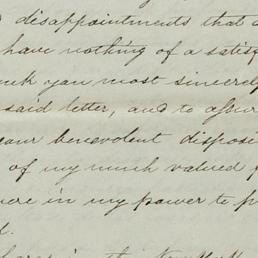 disappointments that
have nothing of a satisf
you most sincerely
said letter, and to assur
your benevolent disposi
of my much valued f
were in my power to p